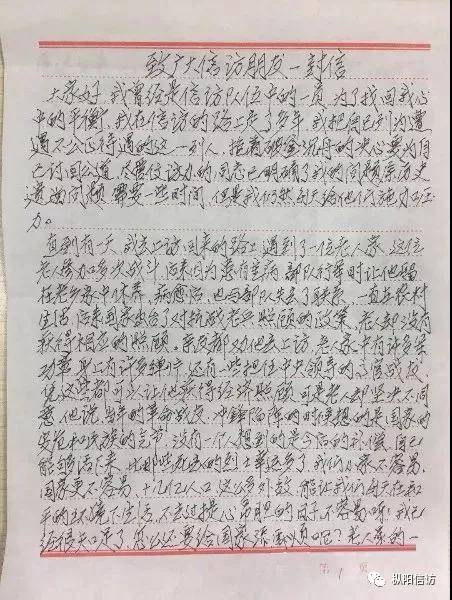 致广大信访朋友一封信
大家好，我曾经是信访队伍中的一员，为了找回我心
中的平衡，我在信访的路上走了多年，我把自己列为遭
遇不公正待遇的这一列人，抱着破釜沉舟的决心要为自
己讨回公道，尽管信访办的同志已明确了我的问题系历史
遗留问题，需要一些时间，但是我仍然天天给他们施加压
力。
直到有一天，我去上访回来的路上遇到了一位老人家，这位
老人参加多次战斗，后来因为
在老乡家中休养，病愈后，也与部队失去了联系，一直在农村
生活，后来国家出台了对抗战老兵照顾的政策，老人却没有
获得相应的照顾。亲友都劝他去上访，老人家中有许多荣
功章，其上有许多还有一些担任中央领导的高官战友，
凭这些都可以让他获得经济照顾，可是老人却坚决不同
意，他说，当年的革命战友，冲锋陷阵的时候想的是国家的
没有一个人想到的是今后的补偿，自己
能够活下来，比那些死去的烈士幸运多了，我们小家不容易，
国家更不容易，十几亿人口，这么多外敌，能让我们每天在和
平的环境下生活，不去过提心吊胆的日子，不容易呀，我已
经很知足了，怎么还要给国家添麻烦呢？老人家的一
第1页
枞阳信访